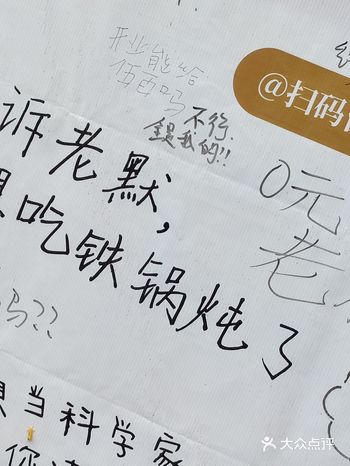 开业能给
伍百吗
不行
全是我的!!
@扫码
诉老默,
想吃铁锅炖了
0元
老
吗??
想当科学家
你
大众点评